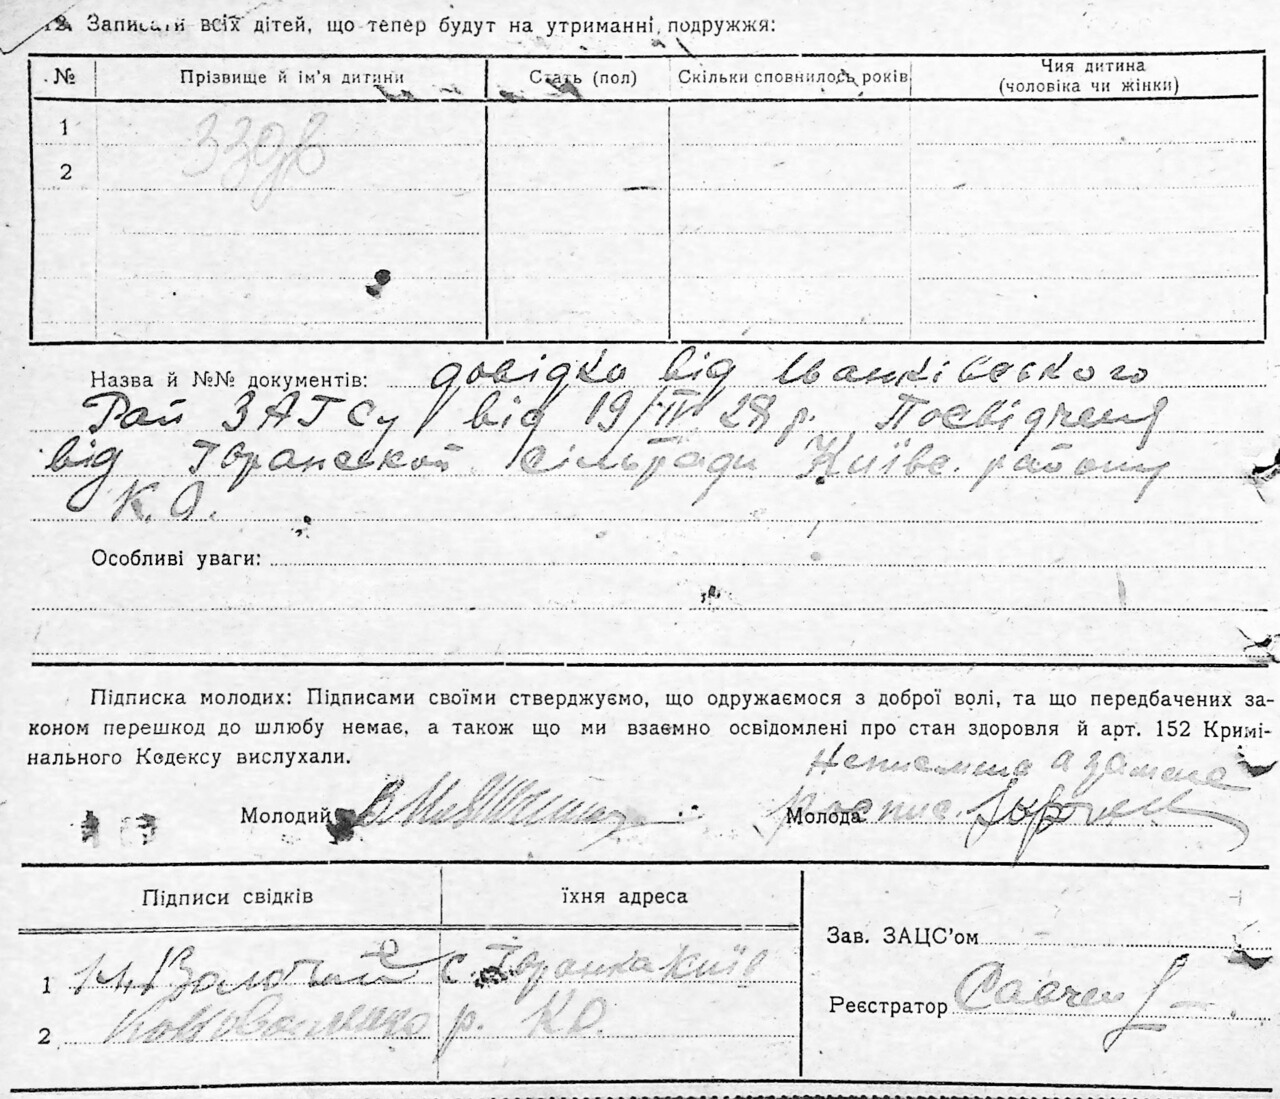 12. Записати всіх дітей, що тепер будут на утриманні подружжя:
№ Прізвище й ім'я дитини Стать (пол) Скільки сповнилось років Чия дитина
(чоловіка чи жінки)
1
2
Назва й №№ документів: довідка від Іванківського
Рай ЗАГСу від 19/IV 28 р. Посвідчення
від сільради Київс. району
К.О.
Особливі уваги:
Підписка молодих: Підписами своїми стверджуємо, що одружаємося з доброї волі, та що передбачених за-
коном перешкод до шлюбу немає, а також що ми взаємно освідомлені про стан здоровля й арт. 152 Кримі-
нального Кодексу вислухали.
Неписьмена а за
Молодий Молода
Підписи свідків їхня адреса
Зав. ЗАЦС'ом
1 Золотий с. Київ
Реєстратор
2 Коноваленко р. КО.